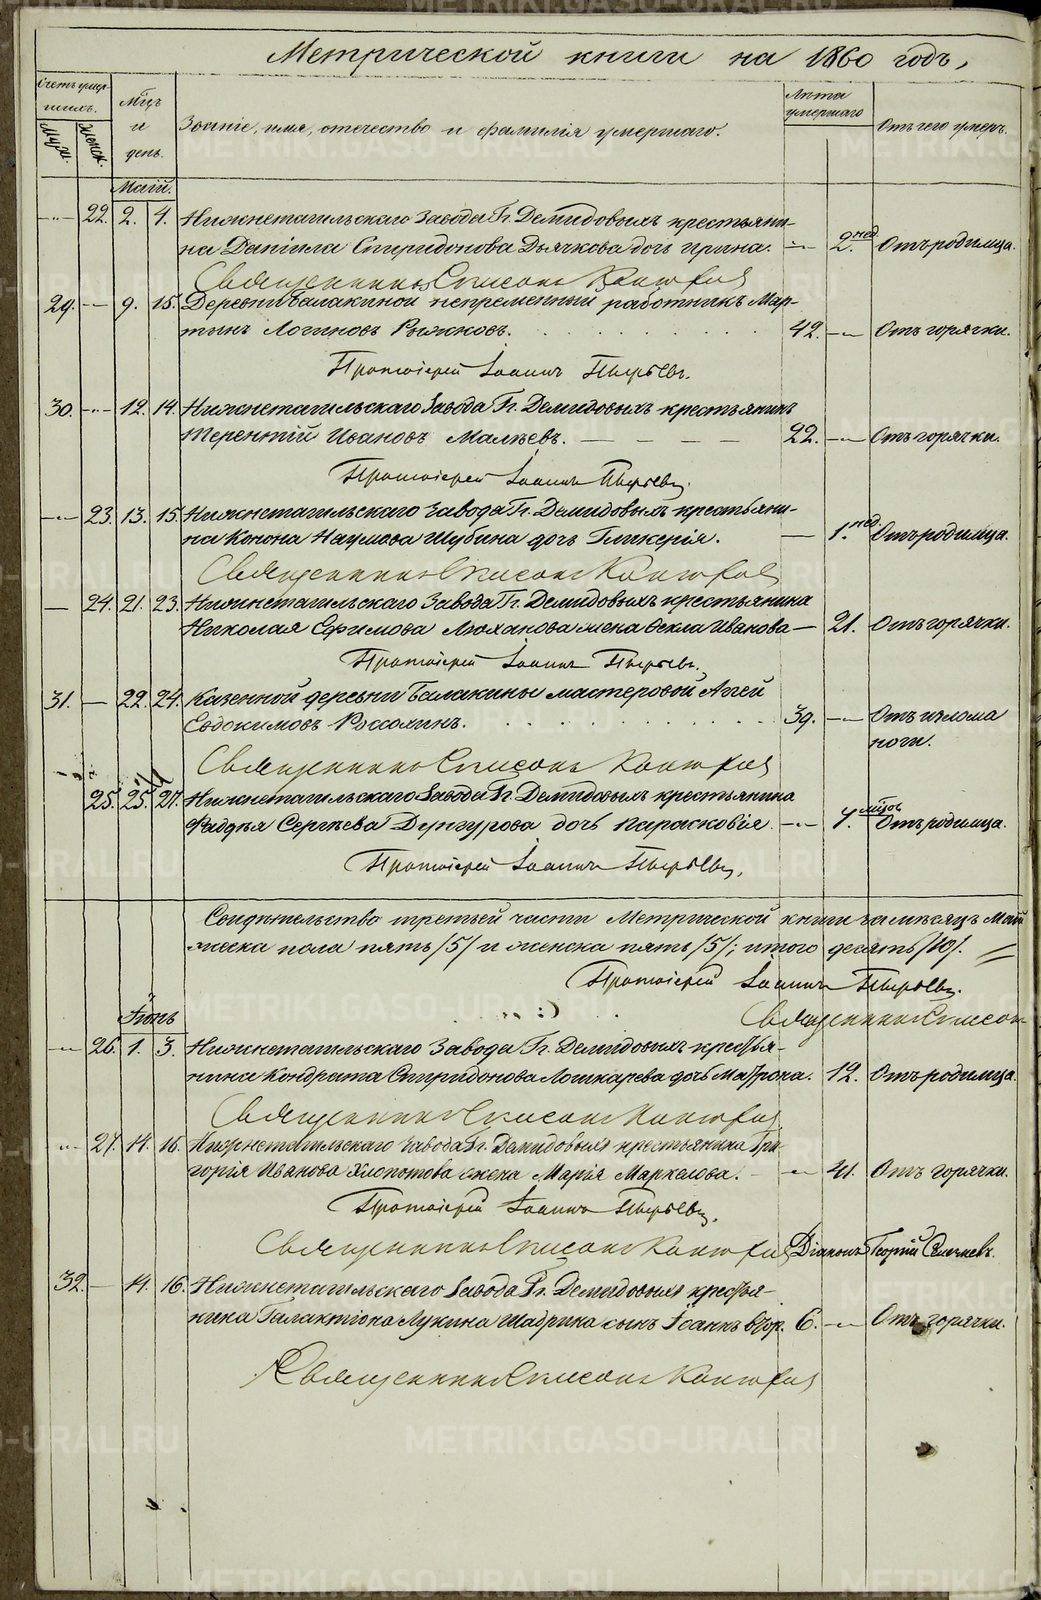 Метрической книги на 1860 годъ,
Счетъ умер-
шихъ.
Муж.
Женск.
Мцъ
и
день.
Званіе, имя, отечество и фамилія умершаго.
Лѣта
умершаго
Отъ чего умеръ.
Маій.
22. 2. 4. Нижнетагильскаго Завода Гг. Демидовыхъ крестьяни-
на Даніила Спиридонова Дьячкова дочь Ирина. 2. нед. Отъ родимца.
Священникъ
29. 9. 15. Деревни Балакиной непременный работникъ Мар-
тинъ Логиновъ Рыжковъ. 42. Отъ горячки.
Протоіерей Іоаннъ
30. 12. 14. Нижнетагильскаго Завода Гг. Демидовыхъ крестьянинъ
Терентій Ивановъ Малѣевъ. 22. Отъ горячки.
Протоіерей Іоаннъ
23. 13. 15. Нижнетагильскаго Завода Гг. Демидовыхъ крестьяни-
на Конона Наумова Шубина дочь Гликерія. 1. нед. Отъ родимца.
Священникъ
24. 21. 23. Нижнетагильскаго Завода Гг. Демидовыхъ крестьянина
Николая Ефимова Люханова жена Ѳекла Иванова 21. Отъ горячки.
Протоіерей Іоаннъ
31. 22. 24. Казенной деревни Балакины мастеровой Агѣй
Евдокимовъ Россохинъ. 39. Отъ излома
ноги.
Священникъ
25. 25. 27. Нижнетагильскаго Завода Гг. Демидовыхъ крестьянина
Фаддѣя Сергѣева Дунгурова дочь Парасковія. мцов Отъ родимца.
Протоіерей Іоаннъ
Соидѣтельство третьей части Метрической книги за мѣсяцъ Май
мужеска пола пять /5/ и женска пять /5/; итого десять /10/.
Протоіерей Іоаннъ
Священникъ
Іюнь
26. 1. 3. Нижнетагильскаго Завода Гг. Демидовыхъ крестья-
нина Кондрата Спиридонова Лошкарева дочь Матрона. 12. Отъ родимца.
Священникъ
27. 14. 16. Нижнетагильскаго Завода Гг. Демидовыхъ крестьянина Гри-
горія Иванова Хлопотова жена Марія Маркелова. 41. Отъ горячки.
Протоіерей Іоаннъ
Священникъ Діаконъ Георгій
32. 14. 16. Нижнетагильскаго Завода Гг. Демидовыхъ крестья-
нина Галактіона Лукина Шабрина сынъ Іоаннъ втор. 6. Отъ горячки.
Священникъ
METRIKI.GASO-URAL.RU